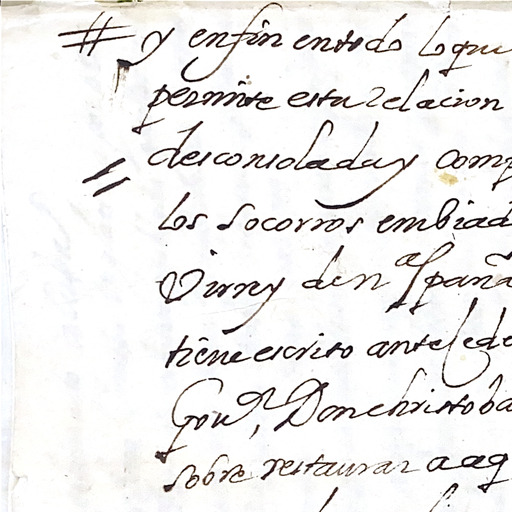 # y en fin en todo lo que
permite esta relacion
desconsolada y comp
los socorros embiad
Virrey de nᵃ españa
tiene escrito antecede
Gouᵒʳ, Don christoba
sobre restaurar a aq